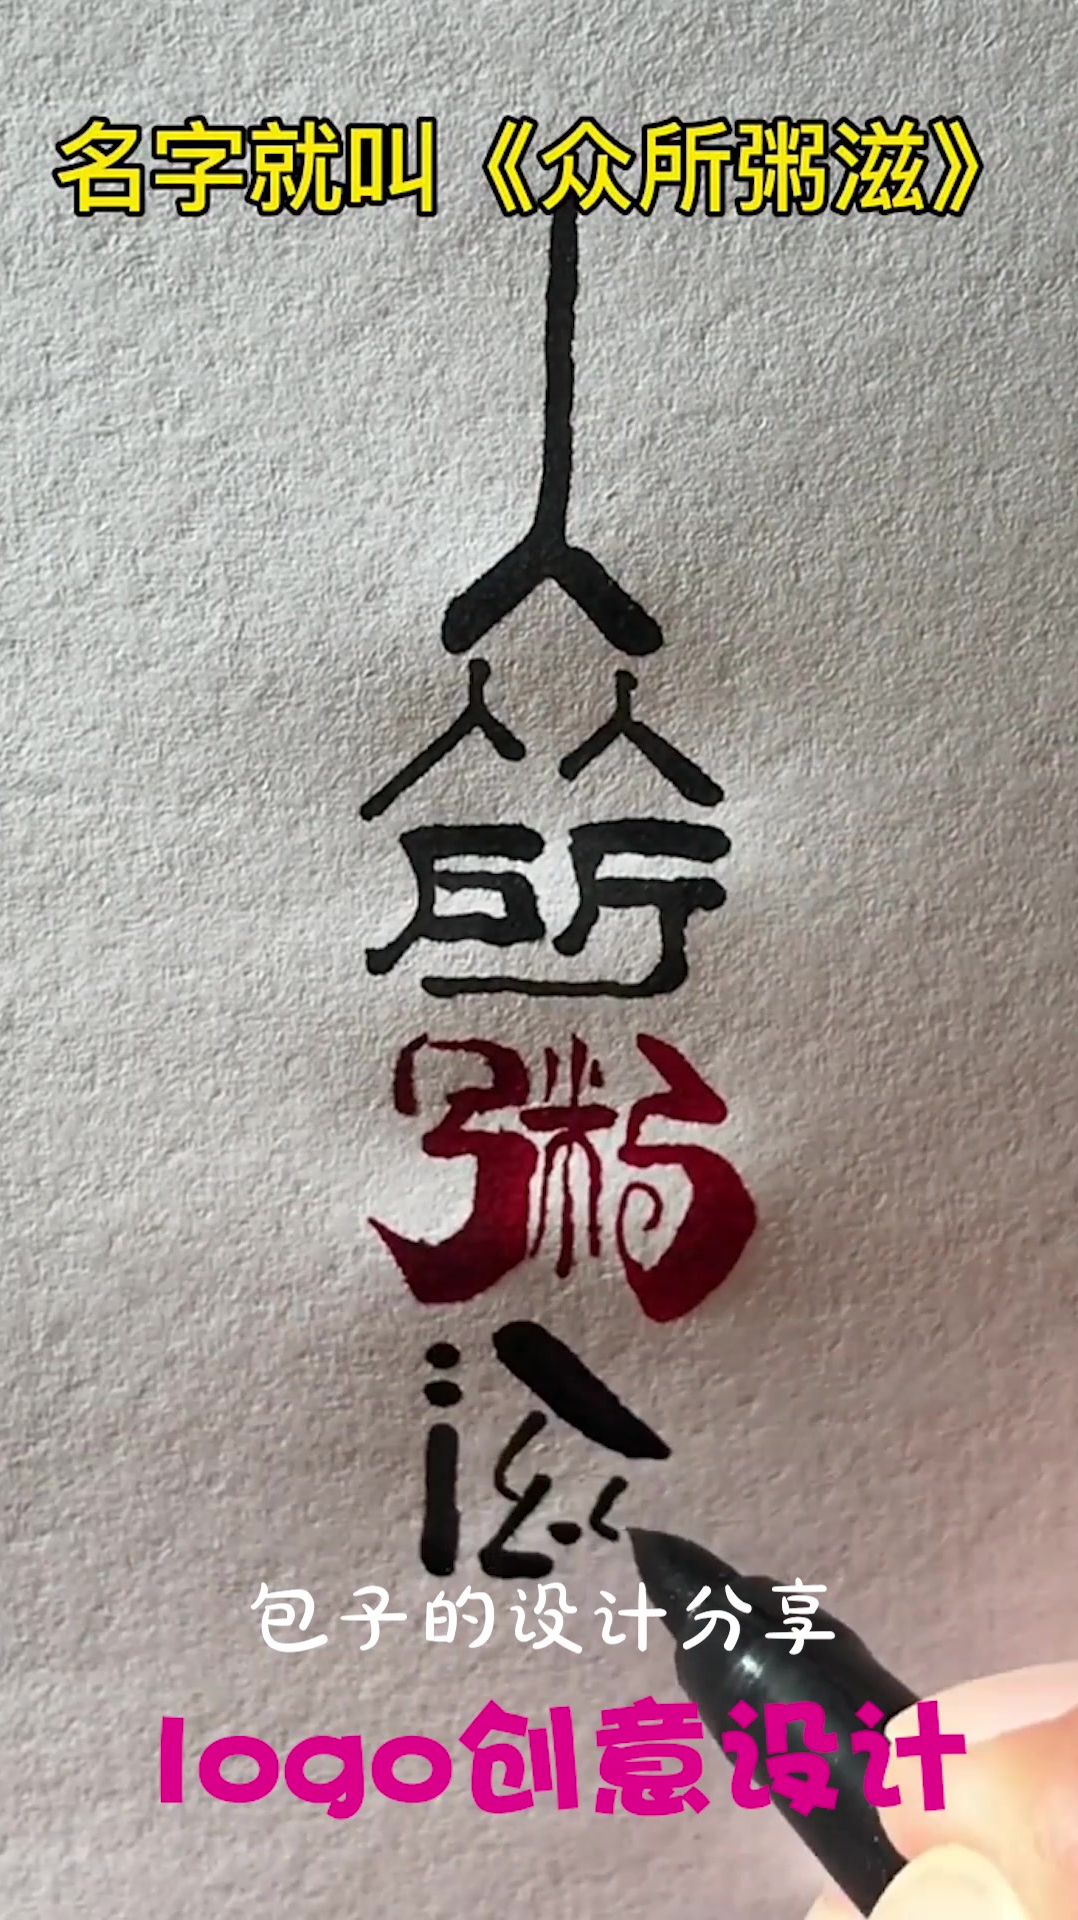 名字就叫《众所粥滋》
众
所
粥
滋
包子的设计分享
logo创意设计